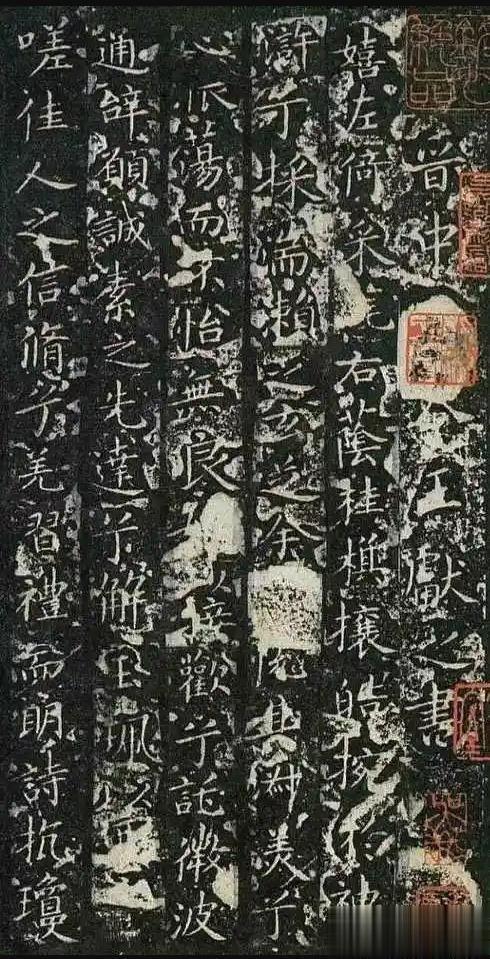 晉中令王獻之書
嬉左倚采旄右蔭桂旗攘皓捥於神
滸兮採湍瀨之玄芝余悅其淑美兮
心振蕩而不怡無良以接歡兮託微波
通辭願誠素之先達兮解玉珮以
嗟佳人之信脩兮羌習禮而明詩抗瓊